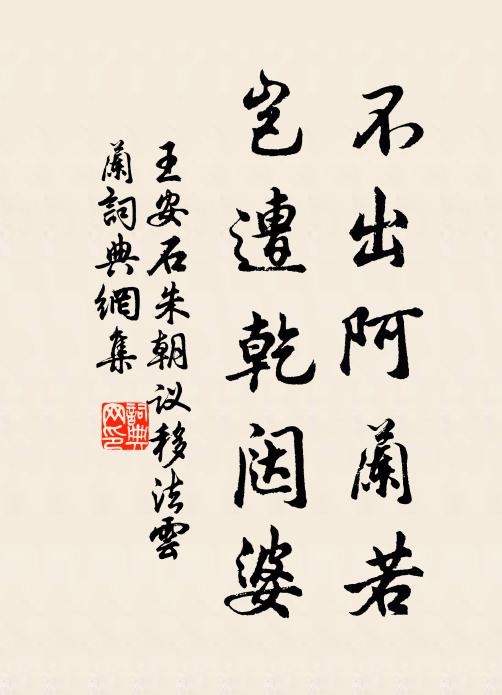 不出阿蘭若
豈遭乾闼婆
王安石朱朝议移法雲
蘭詞典網集
詞典
网印